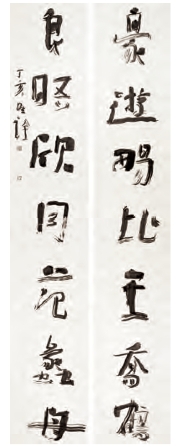 豪遊暢比王喬鶴
良欣同范蠡舟
丁亥